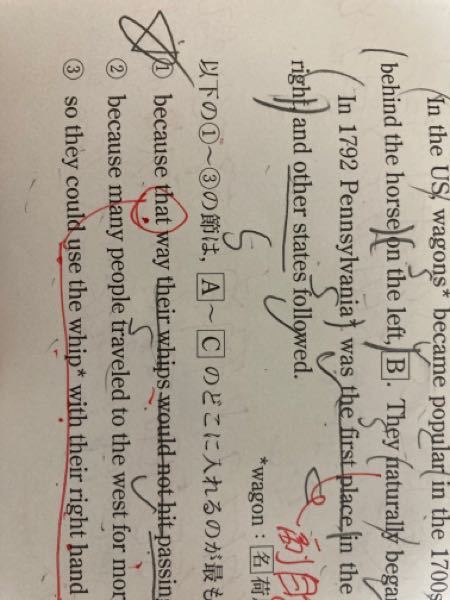 In the US, wagons* became popular in the 1700s
behind the horse on the left, B . They naturally began
In 1792 Pennsylvania* was the first place in the
right and other states followed.
*wagon：名 荷
以下の①～③の節は， A ～ C のどこに入れるのが最も
① because that way their whips would not hit passing
② because many people traveled to the west for mor
③ so they could use the whip* with their right hand